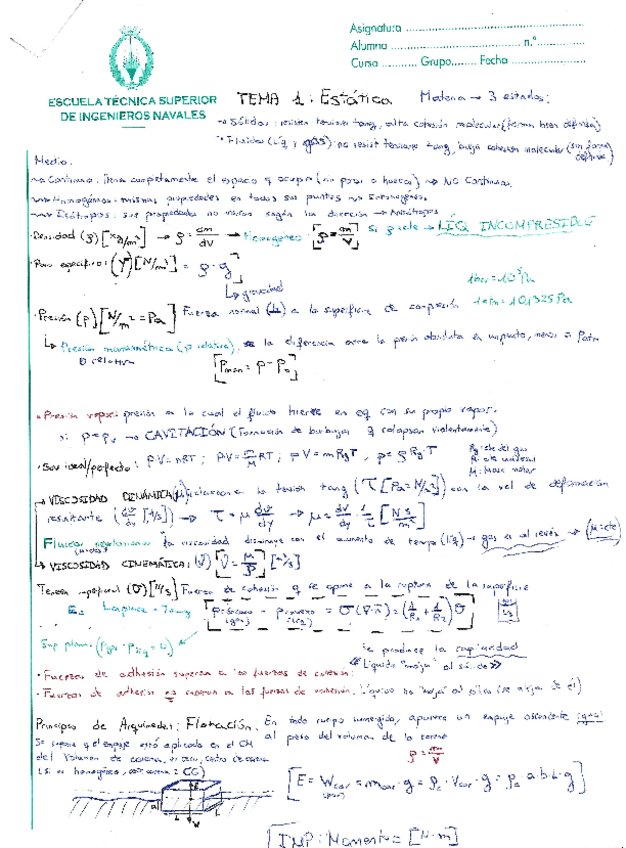 Asignatura
Alumno n.º
Curso Grupo Fecha
ESCUELA TÉCNICA SUPERIOR
DE INGENIEROS NAVALES
TEMA 1: Estática
Materia → 3 estados:
→ Sólidos: resisten tensiones tang, alta cohesión molecular (forman bien definida)
Fluidos (líq y gas): no resist tensiones tang, baja cohesión molecular (sin forma definida)
Medio.
→ Continuo: llena completamente el espacio q ocupa (no poros o huecos) → NO Continuo.
→ Homogéneo: mismas propiedades en todos sus puntos → Heterogéneo.
→ Isótropos: sus propiedades no varían según la dirección → Anisótropos
· Densidad (ρ) [kg/m³] → ρ = dm/dV → Homogéneo: [ρ = m/V] Si ρ cte → LÍQ INCOMPRESIBLE
· Peso específico: (γ) [N/m³] = ρ · g
↳ gravedad
1 bar = 10⁵ Pa
1 atm = 101,325 Pa
· Presión (p) [N/m² = Pa] Fuerza normal (⊥) a la superficie de compresión
↳ Presión manométrica (p relativa): es la diferencia entre la presión absoluta en un punto, menos la Patm
o relativa
[Pman = P - Pa]
· Presión vapor: presión a la cual el fluido hierve en eq con su propio vapor.
si p = pv → CAVITACIÓN (Formación de burbujas q colapsan violentamente)
· Gas ideal/perfecto: PV = nRT; PV = m/M RT; PV = m Rg T, p = ρ Rg T
Rg: cte del gas
R: cte universal
M: Masa molar
→ VISCOSIDAD DINÁMICA (μ): relaciona la tensión tang (τ [Pa = N/m²]) con la vel de deformación
resultante (dv/dy [1/s]) → τ = μ dv/dy → μ = dv/dy · 1/τ [N s/m²]
Fluidos newtonianos la viscosidad disminuye con el aumento de temp (líq) → gas es al revés → (μ = cte)
→ VISCOSIDAD CINEMÁTICA: (ν) [ν = μ/ρ] [m²/s]
Tensión superficial (σ) [N/m] Fuerza de cohesión q se opone a la ruptura de la superficie
Ec Laplace - Young [p cóncavo - p convexo = σ (∇·n) = (1/R1 + 1/R2) σ]
(gas) (líq)
Sup plana: (Pgas - Pliq = 0)
Se produce la capilaridad
« Líquido "moja" al sólido »
· Fuerzas de adhesión supera a las fuerzas de cohesión:
· Fuerzas de adhesión no superan a las fuerzas de cohesión. Líquido no "moja" al sólido (se aleja de él)
Principio de Arquímedes: Flotación. En todo cuerpo sumergido, aparece un empuje ascendente igual
al peso del volumen de la carena
Se supone q el empuje está aplicado en el CM
del volumen de carena, es decir, centro de carena
(si es homogéneo, centro carena = CG)
ρ = m/V
[E = Wcar = mcar · g = ρ · Vcar · g = ρ · a · b · L · g]
[IMP: Momento = [N·m]